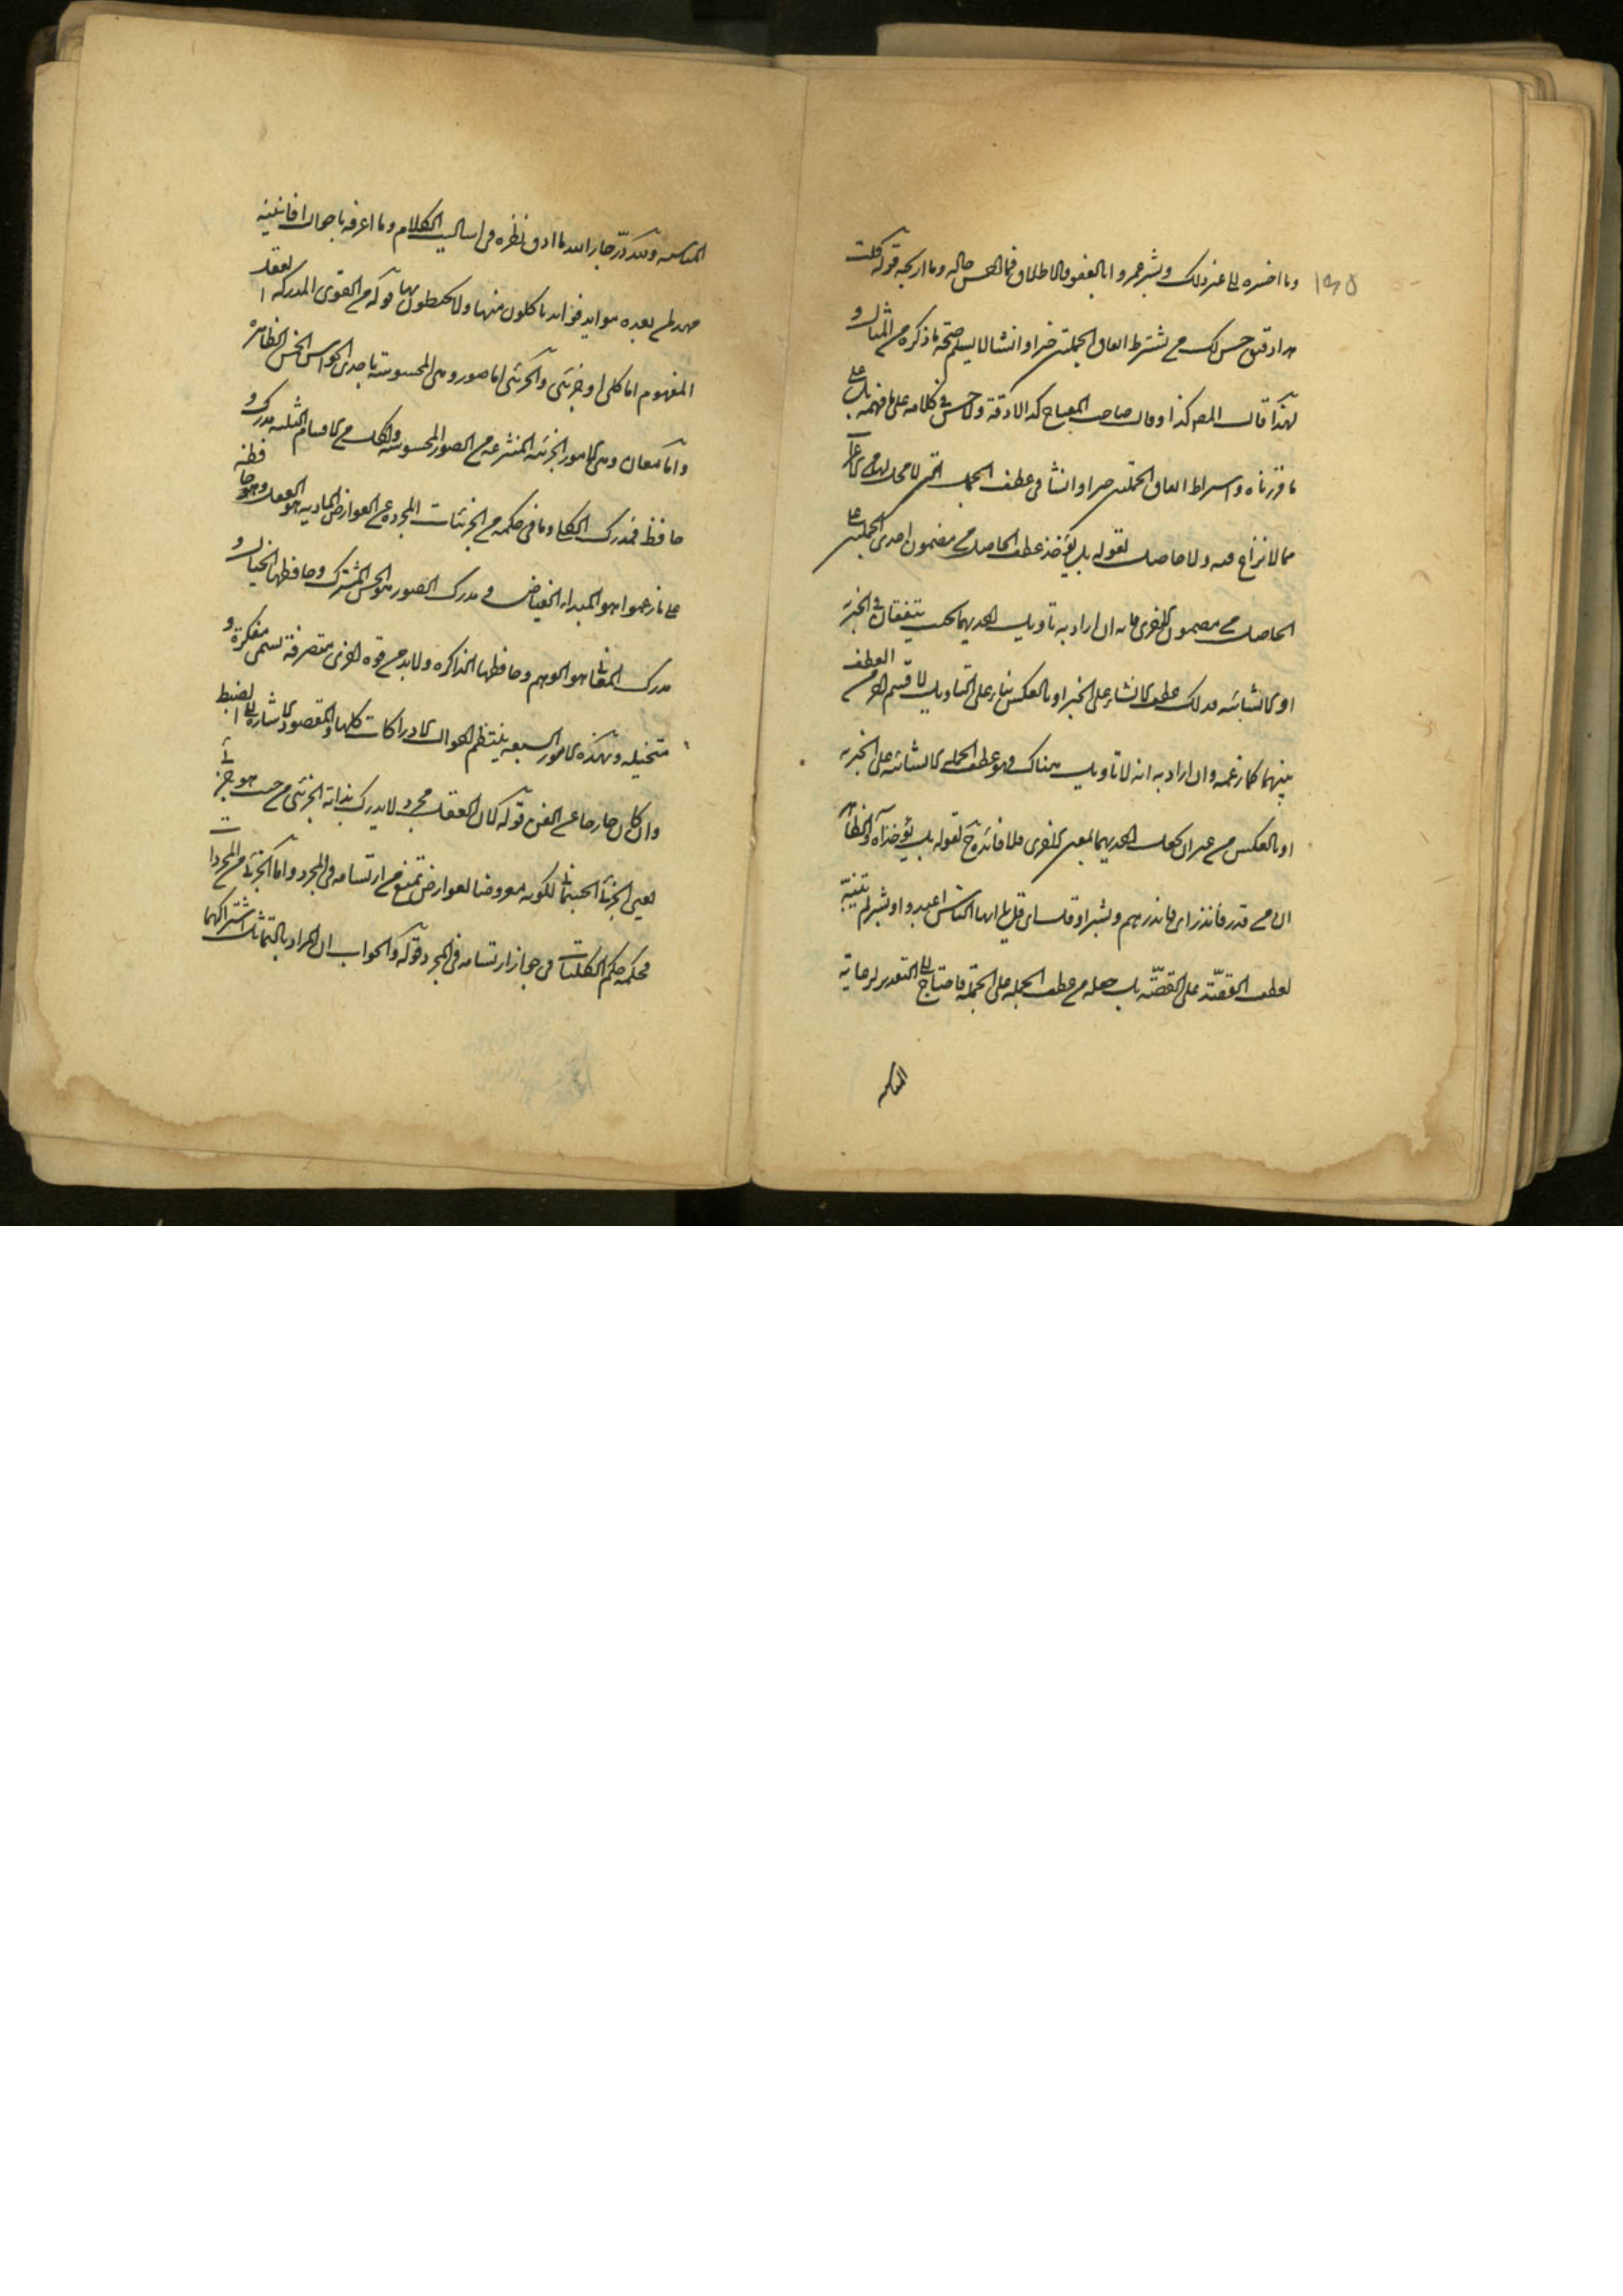 ۱۹۵
وما اخسره الى غير ذلك وبشر عمرو ابالعفو والاطلاق فما احسن حاله وما اربحه قوله قلت
هذا دقيق حسن لكن من يشترط اتفاق الجملتين خبرا وانشاء لا يسلم صحة ما ذكره من المثال و
لهذا قال المص كذا وقال صاحب المفتاح كذا لا دقة ولا حسن في كلامه على ما فهمه بل على
ما قررناه واشتراط اتفاق الجملتين خبرا وانشاء في عطف الجمل التي لا محل لها من الاعراب
مما لا نزاع فيه ولا حاصل لقوله بل يؤخذ عطف الحاصل من مضمون احدى الجملتين على
الحاصل من مضمون الاخرى فانه ان اراد به تاويل احديهما بحيث يتفقان في الخبرية
او الانشائية فذلك عطف الانشاء على الخبر او بالعكس بناء على التاويل لا قسم اخر من العطف
بينهما كما زعمه وان اراد به انه لا تاويل هناك فهو عطف الجملة الانشائية على الخبرية
او بالعكس من غير ان يجعل احديهما بمعنى الاخرى فلا فائدة ح لقوله بل يؤخذ آه والظاهر
ان من قدر فانذر اي فانذرهم وبشر او قل اي قل يا ايها الناس اعبدوا وبشر لم يتنبه
لعطف القصة على القصة بل جعله من عطف الجملة على الجملة فاحتاج الى التقدير لرعاية
المناسبة
المناسبة ولله در جار الله ما ادق نظره في اساليب الكلام وما اعرفه باحوال افانينه
مهد لمن بعده موايد فوايد ياكلون منها ولا يحيطون بها قوله من القوى المدركة العقل
المفهوم اما كلي او جزئي والجزئي اما صور وهي المحسوسة باحدى الحواس الخمس الظاهرة
واما معان وهي الامور الجزئية المنتزعة من الصور المحسوسة ولكل من الاقسام الثلثة مدرك و
حافظ فمدرك الكلي وما في حكمه من الجزئيات المجردة عن العوارض المادية هو العقل وحافظه
على ما زعموا هو المبداء الفياض ومدرك الصور هو الحس المشترك وحافظها الخيال و
مدرك المعاني هو الوهم وحافظها الذاكرة ولا بد من قوة اخرى متصرفة تسمى مفكرة و
متخيلة وبهذه الامور السبعة ينتظم احوال الادراكات كلها والمقصود الاشارة الى الضبط
وان كان خارجا عن الفن قوله لان العقل مجرد لا يدرك بذاته الجزئي من حيث هو جزئي
يعني الجزئي الجسماني لكونه معروضا لعوارض تمنع من ارتسامه في المجرد واما الجزئي من المجردات
فحكمه حكم الكليات في جواز ارتسامه في المجرد قوله والجواب ان المراد بالتماثل اشتراكهما